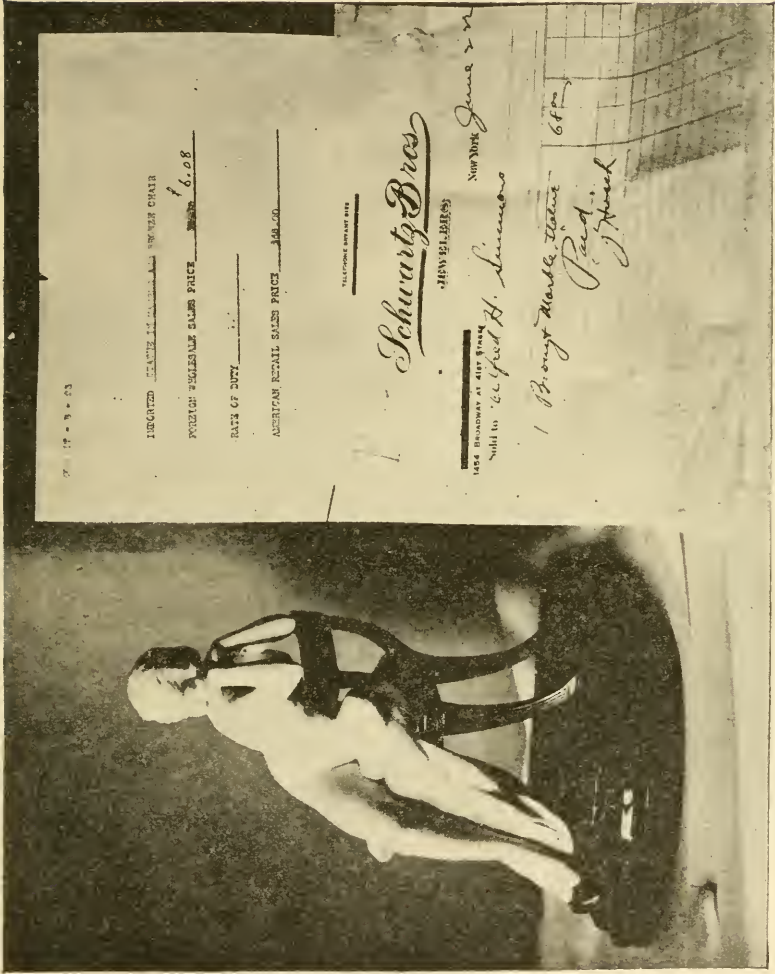 IMPORTED STATUE IN MARBLE AND BRONZE CHAIR
FOREIGN WHOLESALE SALES PRICE $6.08
RATE OF DUTY
AMERICAN RETAIL SALES PRICE $68.00
TELEPHONE BRYANT
Schwartz Bros
JEWELERS
1454 BROADWAY AT 41ST STREET
New York June 2
Sold to Alfred H. Simmons
1 Bronze & Marble Statue 68 00
Paid
J. Hirsch